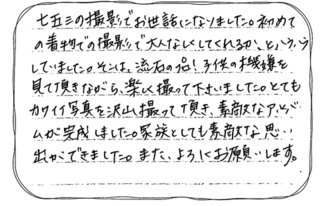 七五三の撮影でお世話になりました。初めて
の着物での撮影で大人なしくしてくれるか、ヒヤヒヤ
していました。そこは、流石のプロ!子供の機嫌を
見て頂きながら、楽しく撮って下さいました。とても
カワイイ写真を沢山撮って頂き、素敵なアルバ
ムが完成しました。家族としても素敵な思い
出ができました。また、よろしくお願いします。